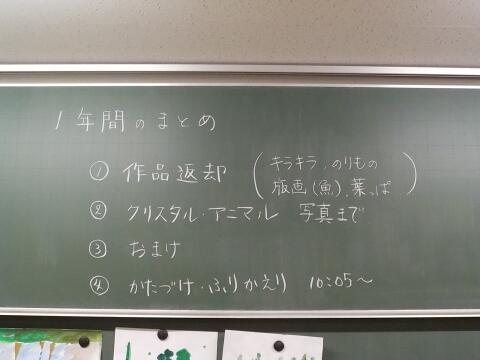 1年間のまとめ
① 作品返却 (キラキラ、のりもの
版画(魚)、葉っぱ)
② クリスタル・アニマル 写真まで
③ おまけ
④ かたづけ・ふりかえり 10:05〜